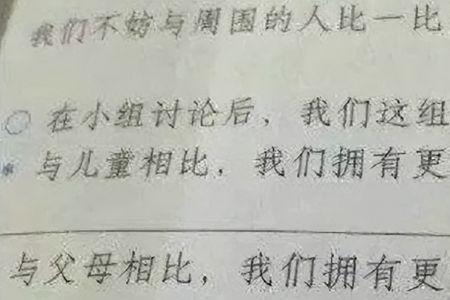 我们不妨与周围的人比一比
在小组讨论后，我们这组
与儿童相比，我们拥有更
与父母相比，我们拥有更